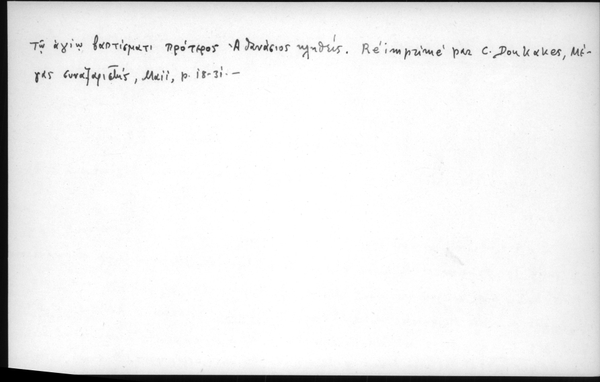 τῷ ἁγίῳ βαπτίσματι πρότερος Ἀθανάσιος κληθείς. Réimprimé par C. Doukakes, Μέ-
γας συναξαριστής, Maii, p. 18-31.—